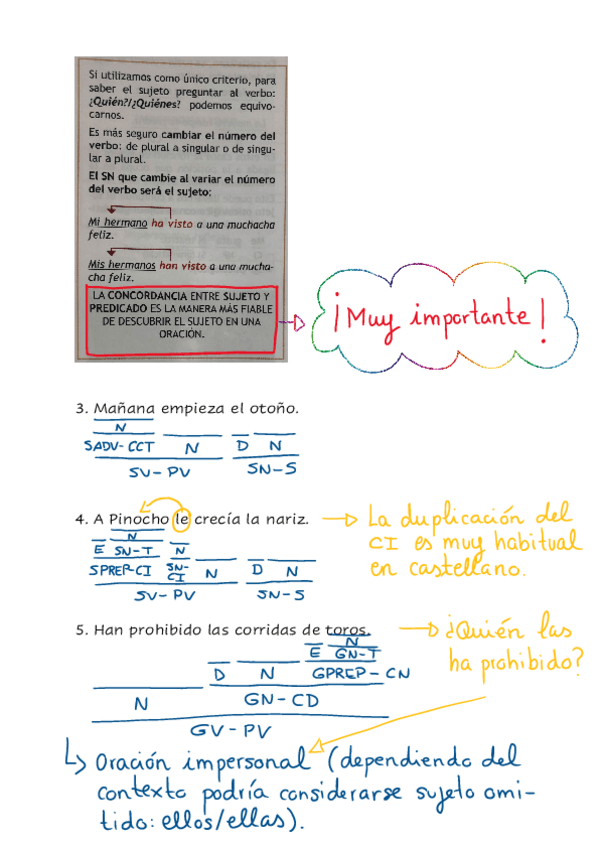 Si utilizamos como único criterio, para
saber el sujeto preguntar al verbo:
¿Quién?/¿Quiénes? podemos equivo-
carnos.
Es más seguro cambiar el número del
verbo: de plural a singular o de singu-
lar a plural.
El SN que cambie al variar el número
del verbo será el sujeto:
Mi hermano ha visto a una muchacha
feliz.
Mis hermanos han visto a una mucha-
cha feliz.
LA CONCORDANCIA ENTRE SUJETO Y
PREDICADO ES LA MANERA MÁS FIABLE
DE DESCUBRIR EL SUJETO EN UNA
ORACIÓN.
¡Muy importante!
3. Mañana empieza el otoño.
N
SADV-CCT N D N
SV-PV SN-S
4. A Pinocho le crecía la nariz.
La duplicación del
CI es muy habitual
en castellano.
N
E SN-T N
SPREP-CI SN-CI N D N
SV-PV SN-S
5. Han prohibido las corridas de toros.
¿Quién las
ha prohibido?
N
E GN-T
D N GPREP-CN
N GN-CD
GV-PV
Oración impersonal (dependiendo del
contexto podría considerarse sujeto omi-
tido: ellos/ellas).